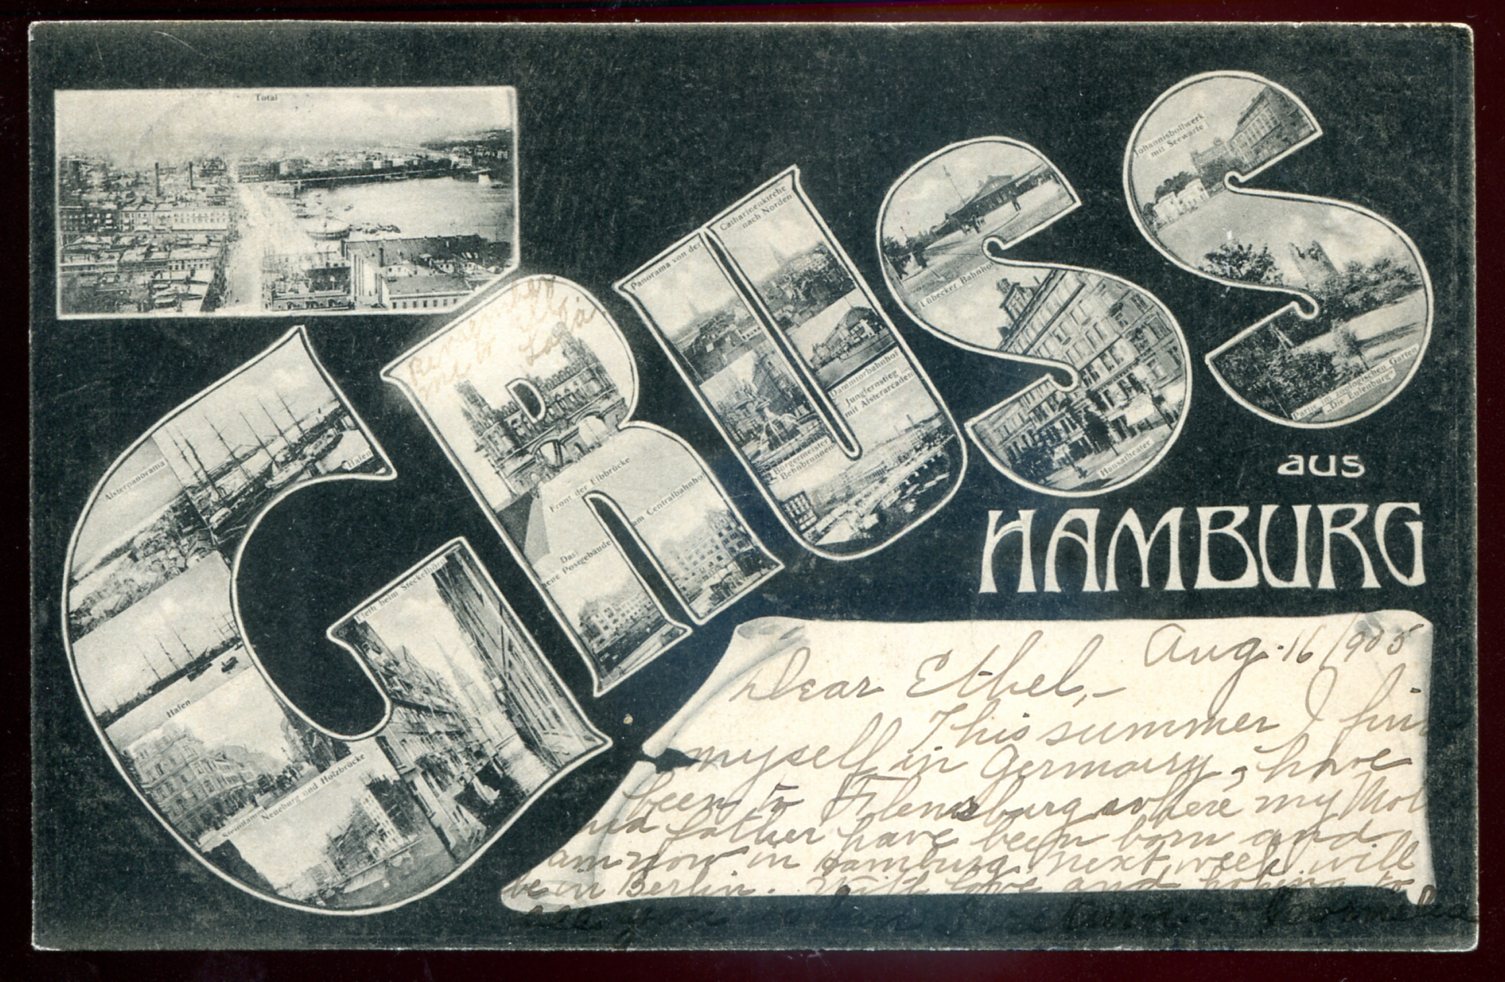 Total
GRUSS
aus
HAMBURG
Johannisbollwerk
mit Seewarte
Catharinenkirche
nach Norden
Panorama von der
Lübecker Bahnhof
Remember
me to Ella
Dammtorbahnhof
Jungfernstieg
mit Alsterarcaden
Partie im zoologischen Garten
"Die Eulenburg"
Hansatheater
Bürgermeister
Alsterpanorama
Hafen
Front der Elbbrücke
am Centralbahnhof
Das
neue Postgebäude
Fleth beim Steckelhörn
Hafen
Steintdam
Neueburg und Holzbrücke
Aug. 16/1905
Dear Ethel,—
This summer I fin
myself in Germany, have
been to Flensburg where my Mot
and father have been born and
am now in Hamburg next week will
be in Berlin. With love and hoping to
see you when I return Cornelia